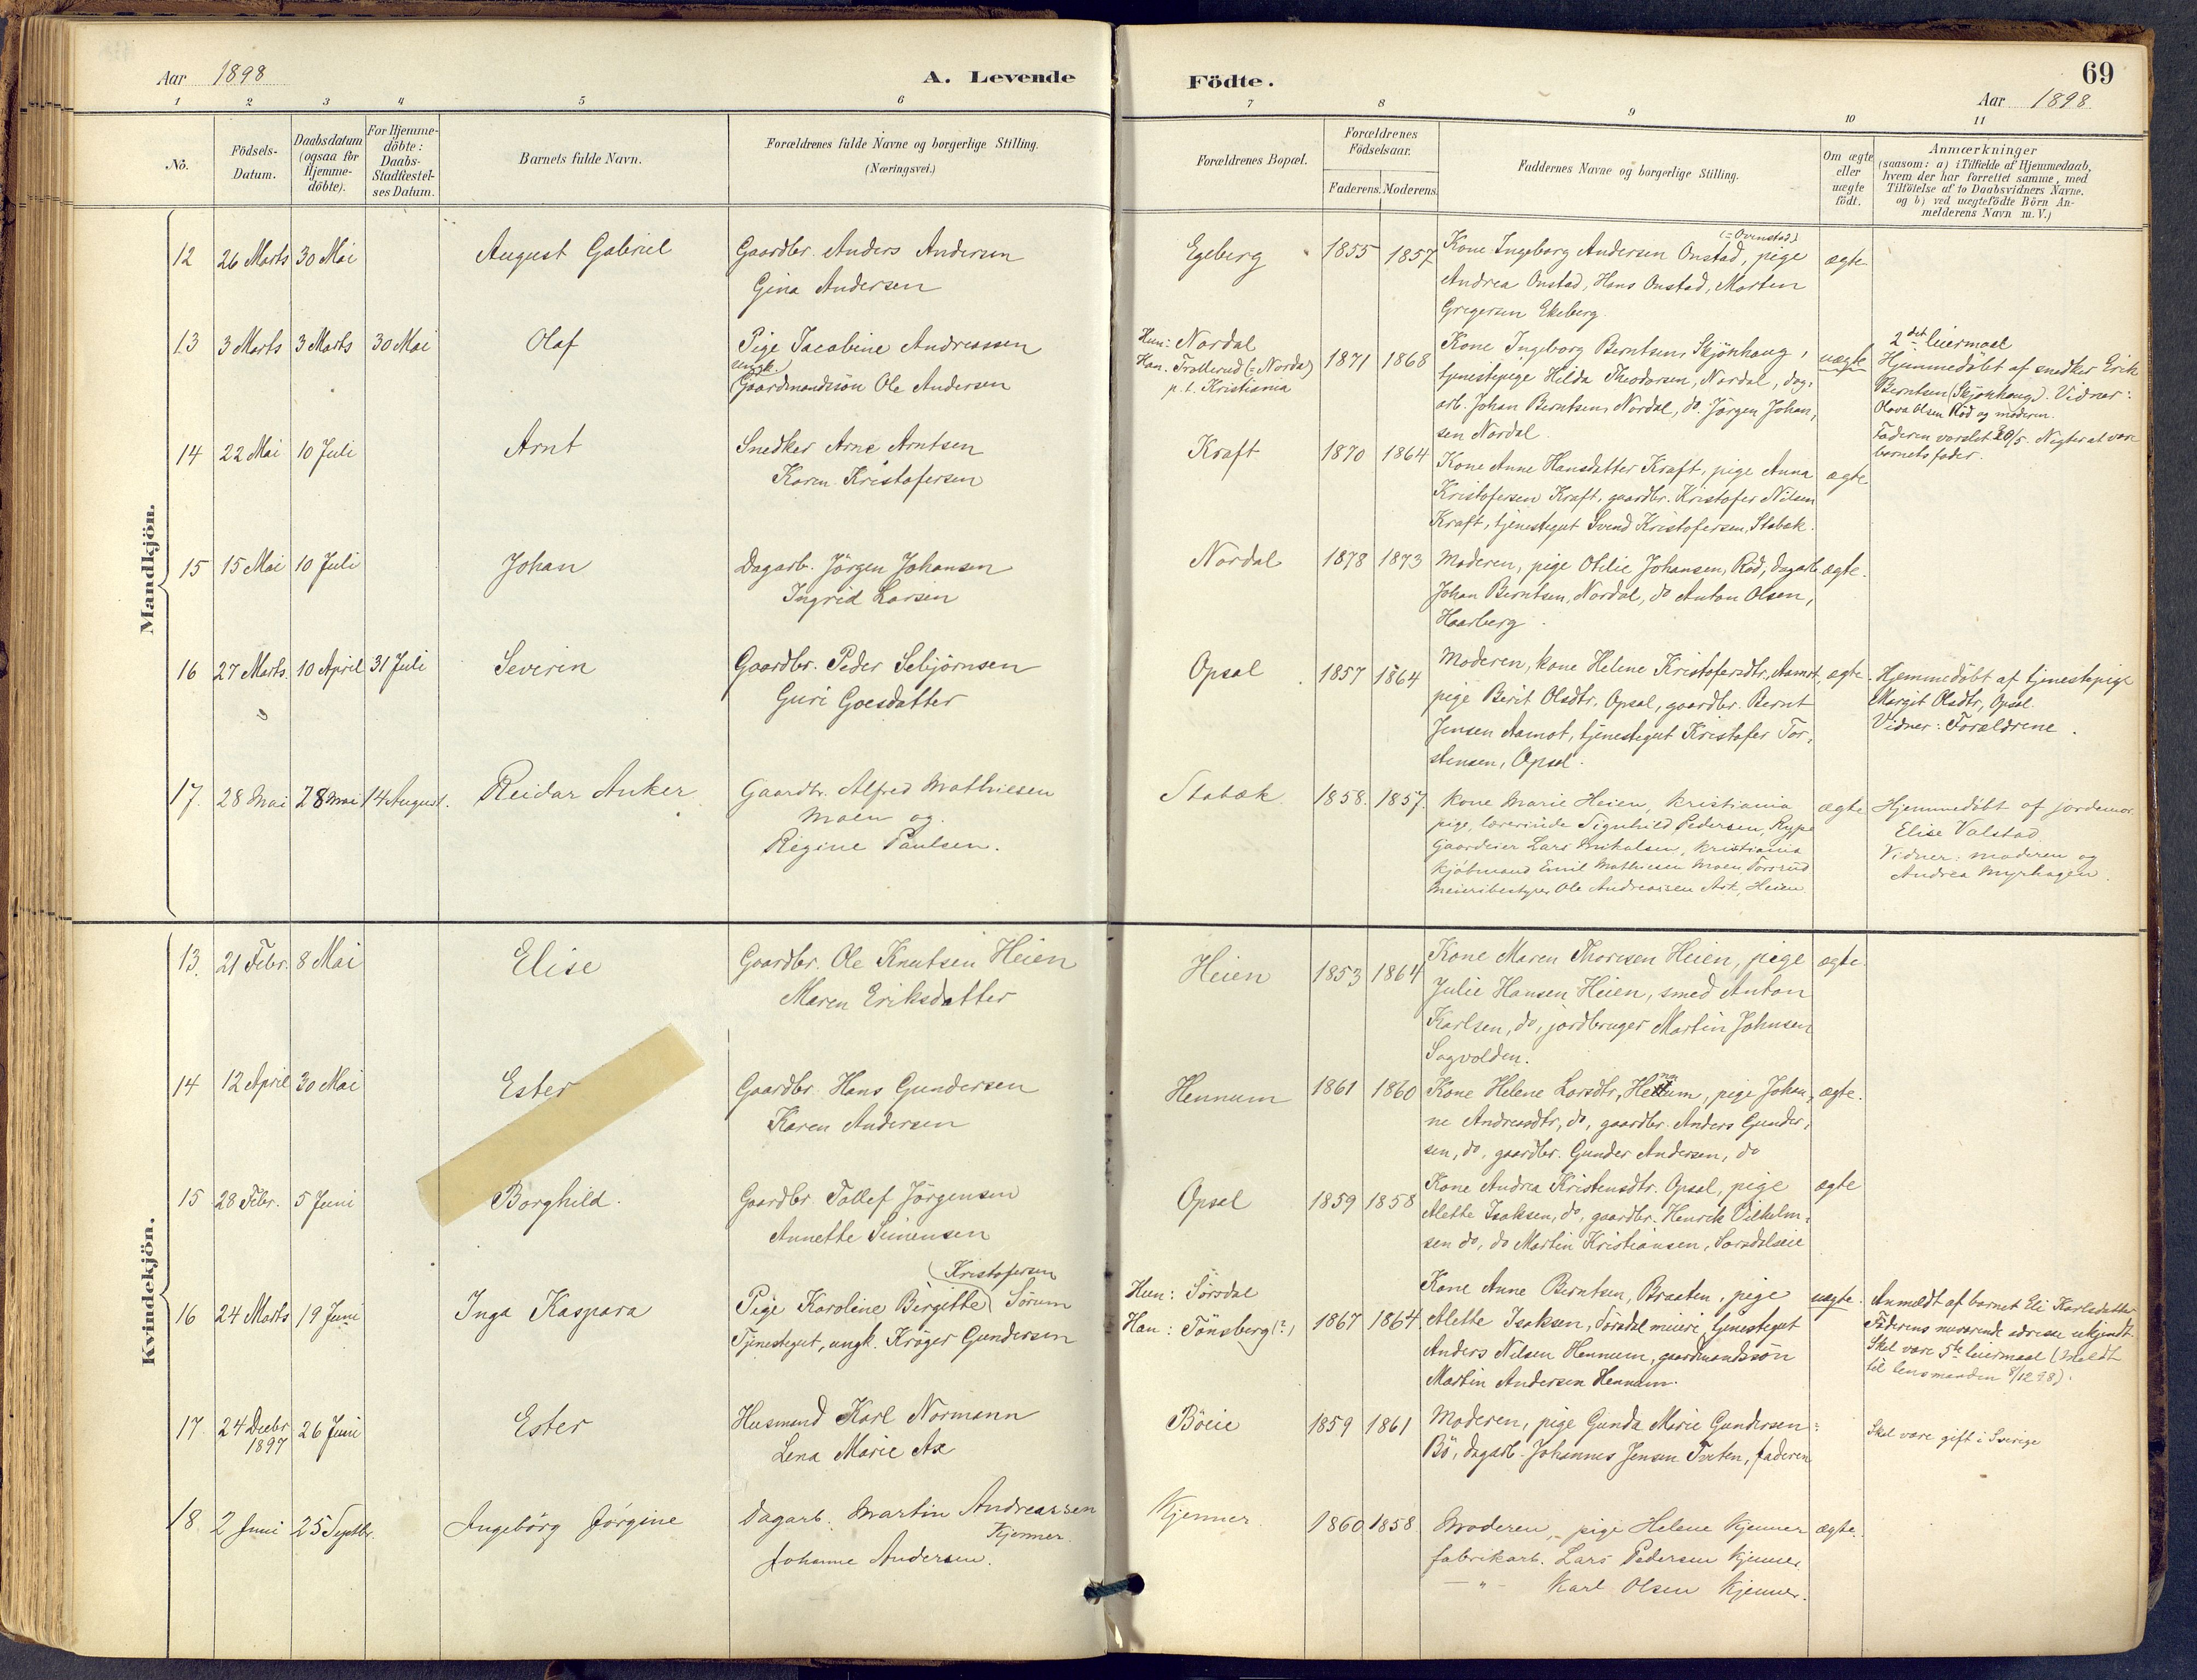 Aar 1898
A. Levende
Födte.
69
Aar 1898
1 2 3 4 5 6 7 8 9 10 11
No.
Födsels-Datum.
Daabsdatum (ogsaa for Hjemme-döbte).
For Hjemme-döbte: Daabs-Stadfæstel-ses Datum.
Barnets fulde Navn.
Forældrenes fulde Navne og borgerlige Stilling.
(Næringsvei.)
Forældrenes Bopæl.
Forældrenes Födselsaar.
Faderens. Moderens.
Faddernes Navne og borgerlige Stilling.
Om ægte eller uægte födt.
Anmærkninger
(saasom: a) i Tilfælde af Hjemmedaab,
hvem der har forrettet samme, med
Tilföielse af to Daabsvidners Navne.
og b) ved uægtefödte Börn An-
melderens Navn m. V.)
Mandkjön.
12 26 Marts 30 Mai August Gabriel
Gaardbr. Anders Andersen
Gina Andersen
Egeberg 1855 1857
(= Ovenstad)
Kone Ingeborg Andersen Onstad, pige
Andrea Onstad, Hans Onstad, Morten
Gregersen Ekeberg.
ægte
13 3 Marts 3 Marts 30 Mai Olaf
Pige Jacobine Andreassen
ungk.
Gaardmandssön Ole Andersen
Hun: Nordal
Han: Trollerud (= Nordal)
p. t. Kristiania
1871 1868
Kone Ingeborg Berntsen, Skjönhaug,
tjenestepige Hilda Theodorsen, Nordal, dag-
arb. Johan Berntsen, Nordal, do. Jörgen Johan-
sen Nordal
uægte
2det leiermaal
Hjemmedöbt af snedker Erik
Berntsen (Skjönhaug). Vidner:
Olava Olsen Röd og moderen.
Faderen varslet 20/5. Negter at være
barnets fader.
14 22 Mai 10 Juli Arnt
Snedker Arne Arntsen
Karen Kristofersen
Kraft 1870 1864
Kone Anne Hansdatter Kraft, pige Anna
Kristofersen Kraft, gaardbr. Kristofer Nilsen
Kraft, tjenestegut Svend Kristofersen, Stabæk.
ægte
15 15 Mai 10 Juli Johan
Dagarb. Jörgen Johansen
Ingrid Larsen
Nordal 1878 1873
Moderen, pige Otilie Johansen, Röd, dagarb.
Johan Berntsen, Nordal, do Anton Olsen,
Haarberg.
ægte.
16 27 Marts 10 April 31 Juli Severin
Gaardbr. Peder Sebjörnsen
Guri Goesdatter
Opsal 1857 1864
Moderen, kone Helene Kristofersdtr, Aamot,
pige Berit Olsdtr. Opsal, gaardbr. Bernt
Jensen Aamot, tjenestegut Kristofer Tor-
stensen, Opsal.
ægte.
Hjemmedöbt af tjenestepige
Margit Olsdtr, Opsal.
Vidner: Forældrene.
17. 28 Mai 28 Mai 14 August. Reidar Anker
Gaardbr. Alfred Mathiesen
Moen og
Regine Paulsen.
Stabæk 1858. 1857.
Kone Marie Heien, Kristiania
pige, lærerinde Signhild Pedersen, Rype
Gaardeier Lars Mikalsen, Kristiania
Kjöbmand Emil Mathiesen Moen, Torsrud
Meieribestyrer Ole Andreassen Ask, Heien.
ægte
Hjemmedöbt af jordemor
Elise Valstad
Vidner: moderen og
Andrea Myrhagen.
Kvindekjön.
13. 21 Febr. 8 Mai Elise
Gaardbr. Ole Knutsen Heien
Maren Eriksdatter
Heien 1853 1864
Kone Maren Thoresen Heien, pige
Julie Hansen Heien, smed Anton
Karlsen, do, jordbruger Martin Johnsen
Sagvolden.
ægte.
14 12 April 30 Mai Ester
Gaardbr. Hans Gundersen
Karen Andersen
Hennum 1861 1860
Kone Helene Larsdtr, Hennum, pige Johan-
ne Andreasdtr, do, gaardbr. Anders Gunder-
sen, do, gaardbr. Gunder Andersen, do
ægte.
15 28 Febr. 5 Juni Borghild.
Gaardbr. Tollef Jörgensen
Annette Simensen
Opsal 1859 1858
Kone Andrea Kristensdtr. Opsal, pige
Alette Isaksen, do, gaardbr. Henrik Vilhelm-
sen do, do Martin Kristiansen, Sörsdalseie
ægte
16 24 Marts 19 Juni Inga Kaspara
(Kristofersen
Pige Karoline Birgitte) Sörum
Tjenestegut, ungk. Kröger Gundersen
Hun: Sörsdal
Han: Tönsberg (?)
1867 1864
Kone Anne Berntsen, Braaten, pige
Alette Isaksen, Sörsdal meieri, tjenestegut
Anders Nilsen Hennum, gaardmandssön
Martin Andersen Hennum.
uægte.
Anmeldt af barnet Eli Karlsdatter
Faderens nuværende adresse ukjendt.
Skal være 5te leiermaal (Meldt
til lensmanden 8/12 98).
17. 24 Decbr 1897 26 Juni Ester
Husmand Karl Normann
Lena Marie Ax
Böeie 1859 1861
Moderen, pige Gunda Marie Gundersen
Bö, dagarb. Johannes Jensen Tveten, faderen
Skal være gift i Sverige
18. 2 Juni 25 Septbr. Ingebörg Jörgine
Dagarb. Martin Andreassen
Kjenner.
Johanne Andersen.
Kjenner 1860 1858.
Moderen, pige Helene Kjenner
fabrikarb. Lars Pedersen Kjenner
— " — Karl Olsen Kjenner.
ægte.